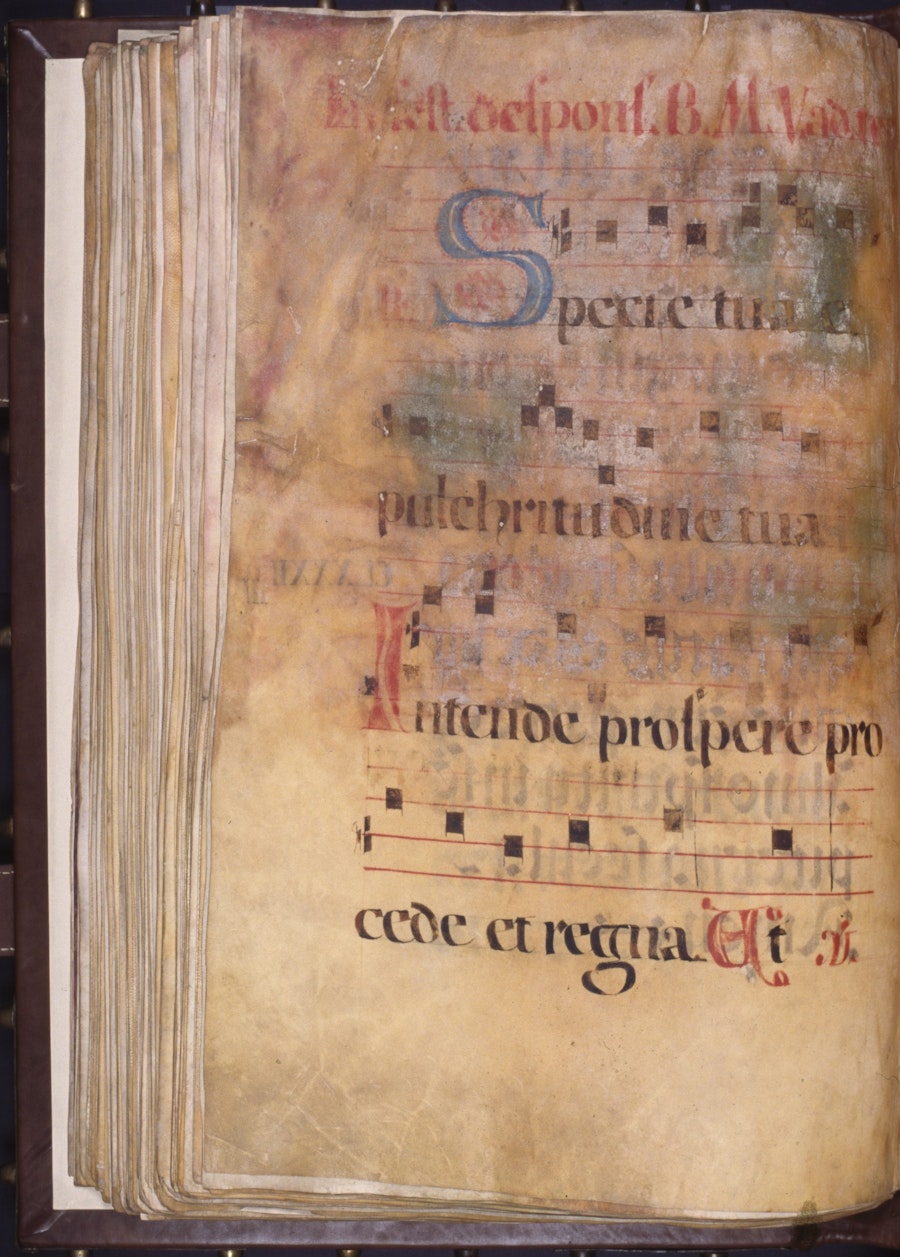 In fest. despons. B. M. V. ad
Specie tua e
pulchritudine tua
Intende prospere pro
cede et regna. Et ℣.